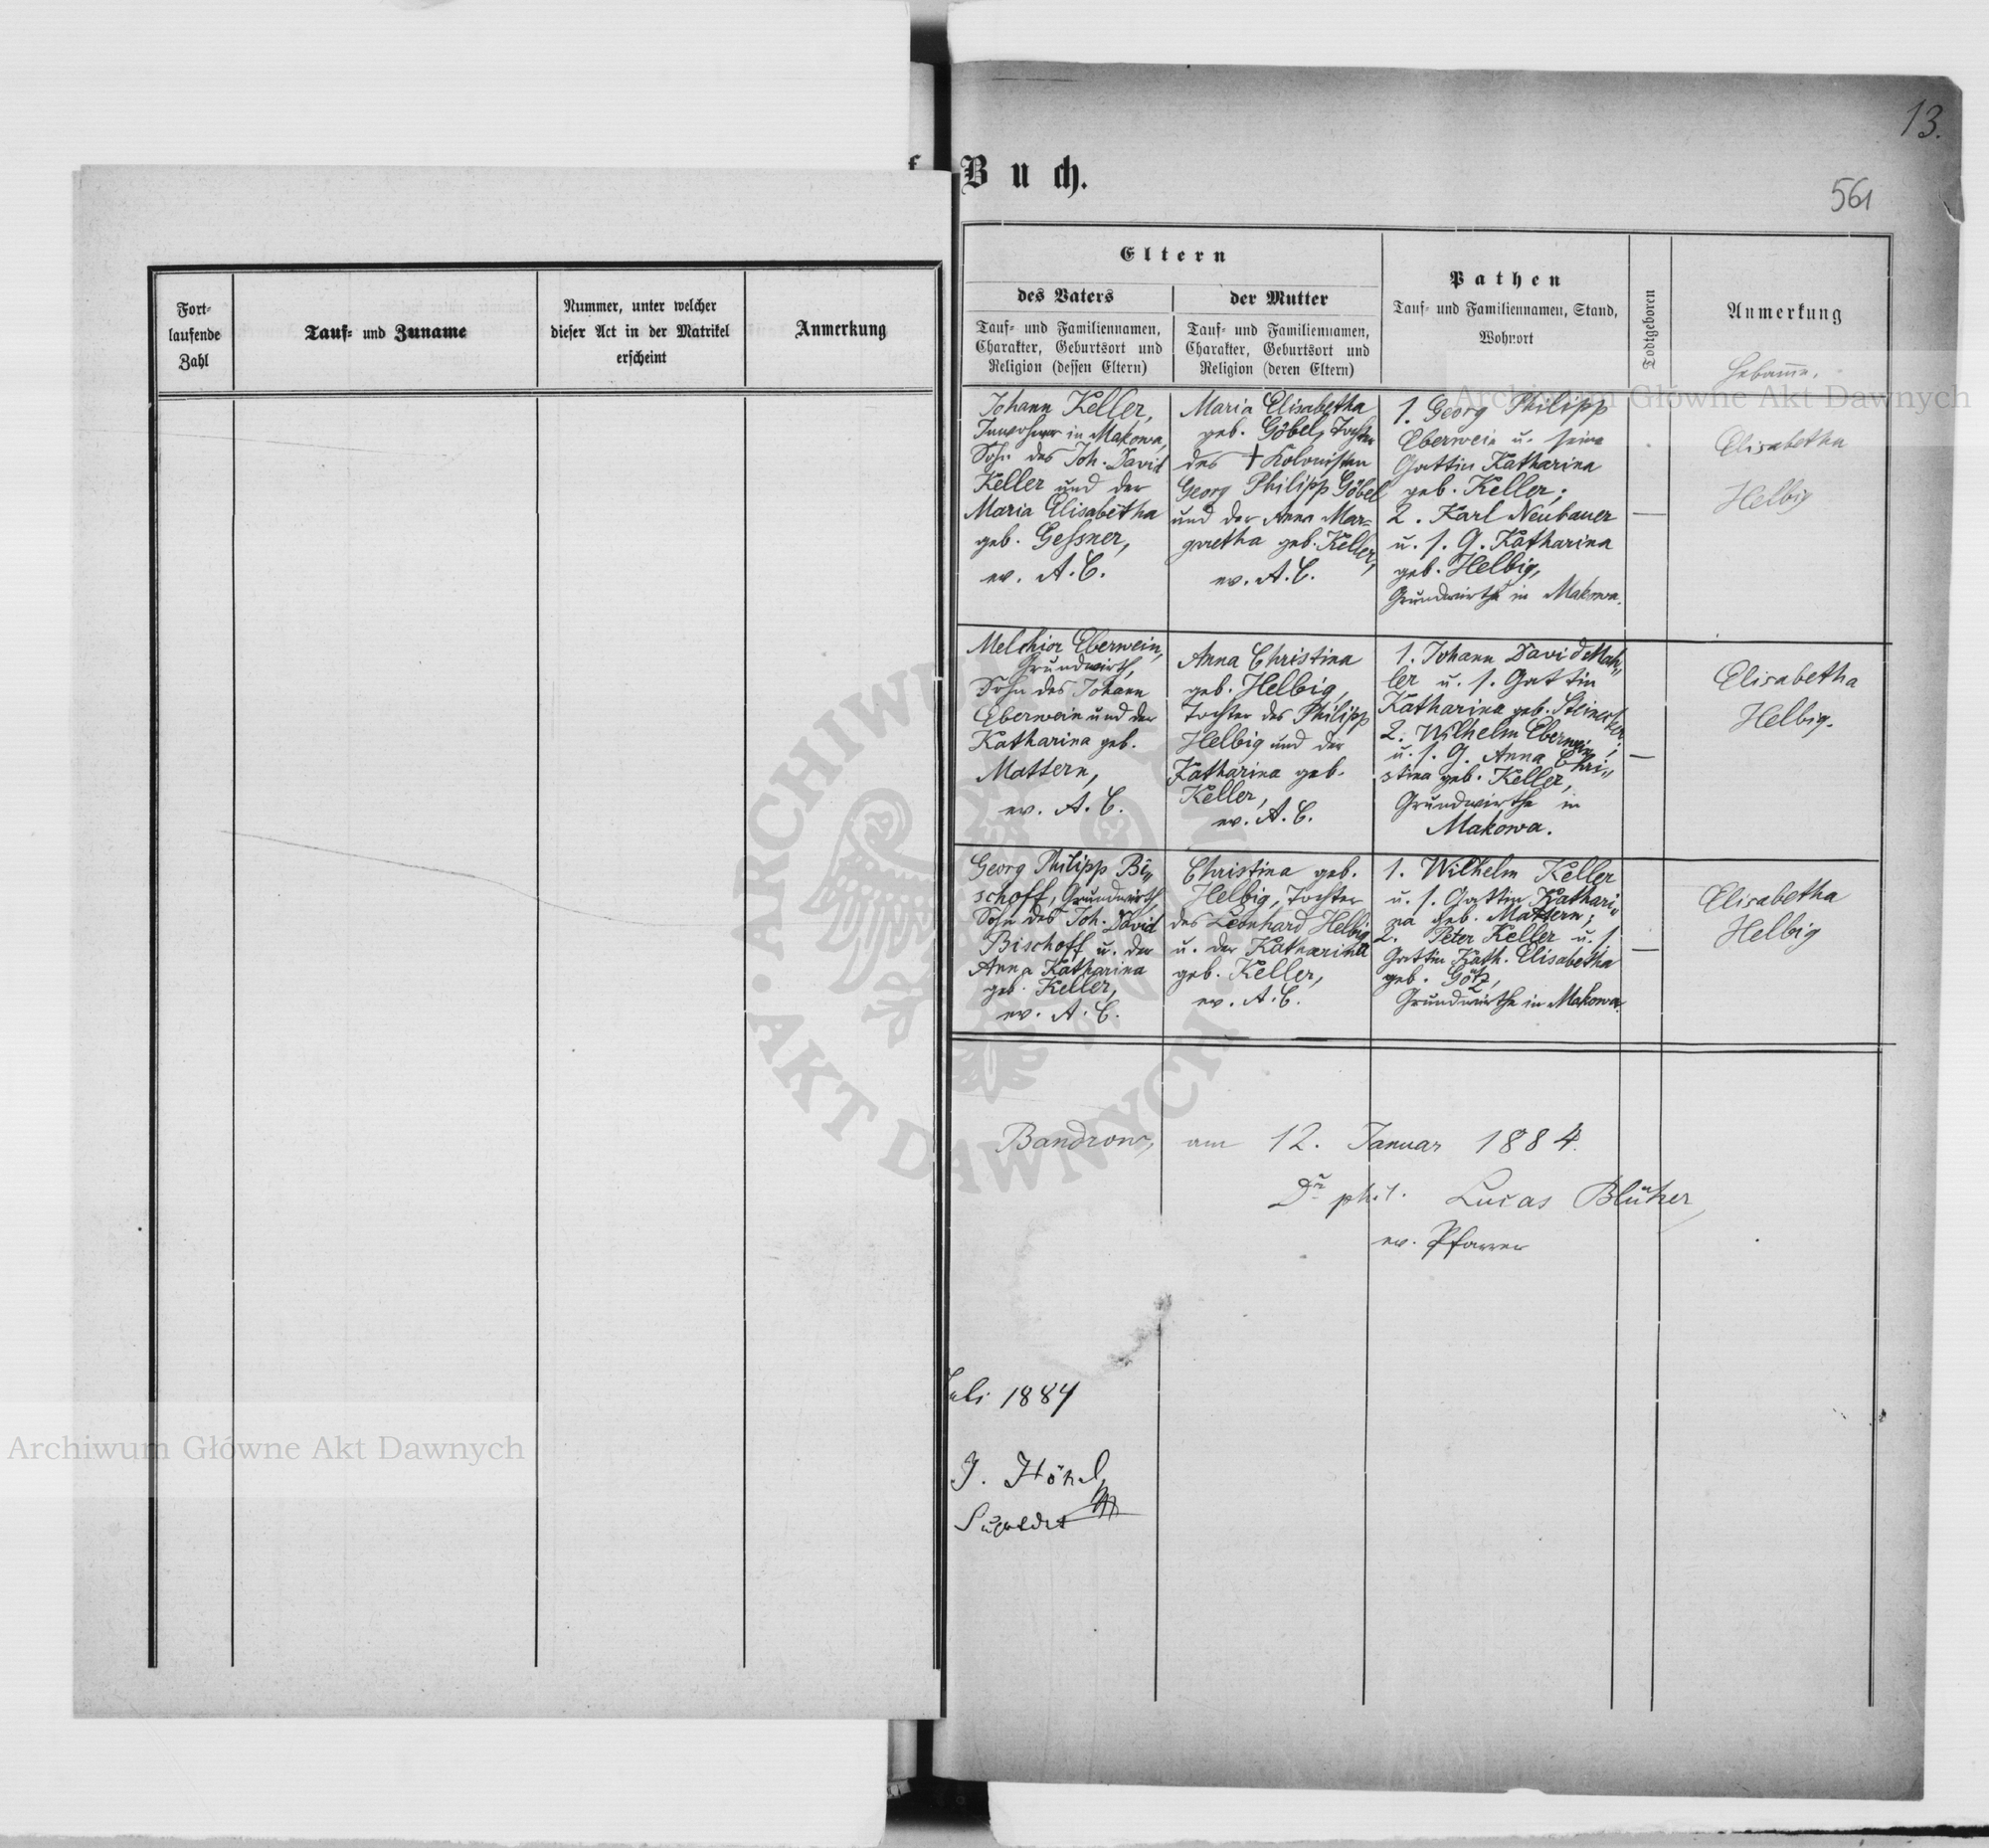 13.
Buch.
561
Fort-
laufende
Zahl
Tauf- und Zuname
Nummer, unter welcher
dieser Act in der Matrikel
erscheint
Anmerkung
Eltern
des Vaters
Tauf- und Familiennamen,
Charakter, Geburtsort und
Religion (dessen Eltern)
der Mutter
Tauf- und Familiennamen,
Charakter, Geburtsort und
Religion (deren Eltern)
Pathen
Tauf- und Familiennamen, Stand,
Wohnort
Todtgeboren
Anmerkung
Hebamme.
Johann Keller,
Inwohner in Makowa,
Sohn des Joh. David
Keller und der
Maria Elisabetha
geb. Gessner,
ev. A. C.
Maria Elisabetha
geb. Göbel, Tochter
des † Kolonisten
Georg Philipp Göbel
und der Anna Mar=
garetha geb. Keller,
ev. A. C.
1. Georg Philipp
Eberwein u. seine
Gattin Katharina
geb. Keller;
2. Karl Neubauer
u. s. G. Katharina
geb. Helbig,
Grundwirthe in Makowa.
—
Elisabetha
Helbig
Melchior Eberwein,
Grundwirth,
Sohn des Johann
Eberwein und der
Katharina geb.
Mattern,
ev. A. C.
Anna Christina
geb. Helbig,
Tochter des Philipp
Helbig und der
Katharina geb.
Keller,
ev. A. C.
1. Johann David Mah„
ler u. s. Gattin
Katharina geb.
2. Wilhelm Eberwein
u. s. G. Anna Chri„
stina geb. Keller,
Grundwirthe in
Makowa.
—
Elisabetha
Helbig.
Georg Philipp Bi„
schoff, Grundwirth,
Sohn des Joh. David
Bischoff u. der
Anna Katharina
geb. Keller,
ev. A. C.
Christina geb.
Helbig, Tochter
des Leonhard Helbig
u. der Katharina
geb. Keller,
ev. A. C.
1. Wilhelm Keller
u. s. Gattin Kathari„
na geb. Mattern;
2. Peter Keller u. s.
Gattin Kath. Elisabetha
geb. Götz,
Grundwirthe in Makowa.
—
Elisabetha
Helbig
Bandrow, am 12. Januar 1884.
Dr phil. Lucas Blüher
ev. Pfarrer
Juli 1884
J. Hönel
Archiwum Główne Akt Dawnych
Archiwum Główne Akt Dawnych
AKT DAWNYCH